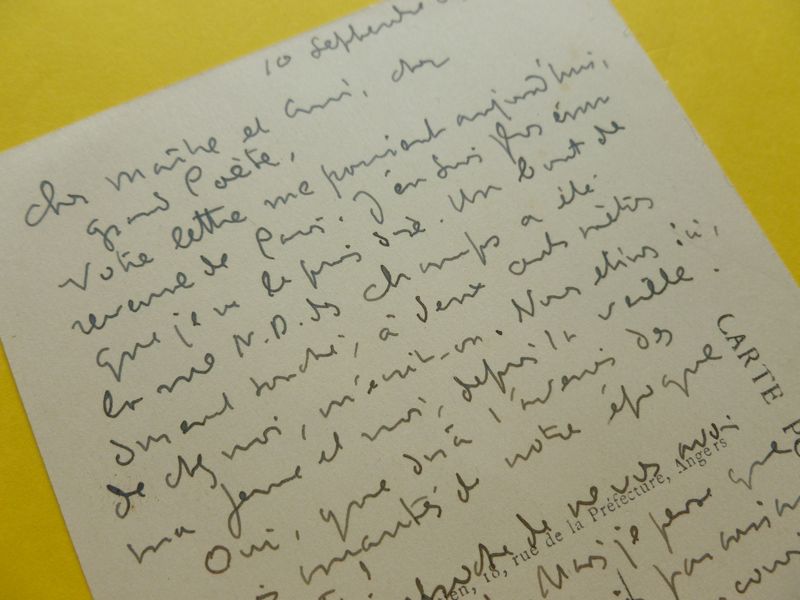 10 septembre
Cher maître et ami, cher
grand Poète,
Votre lettre me parvient aujourd'hui,
revenue de Paris. J'en suis plus ému
que je ne le puis dire. Un bout de
la rue N.D. des Champs a été
à deux cents mètres
de chez moi, m'écrit-on. Nous étions ici,
ma femme et moi, depuis la veille.
Oui, que dira l'avenir des
de notre époque
de ne vous avoir
Mais je pense que
CARTE
18, rue de la Préfecture, Angers